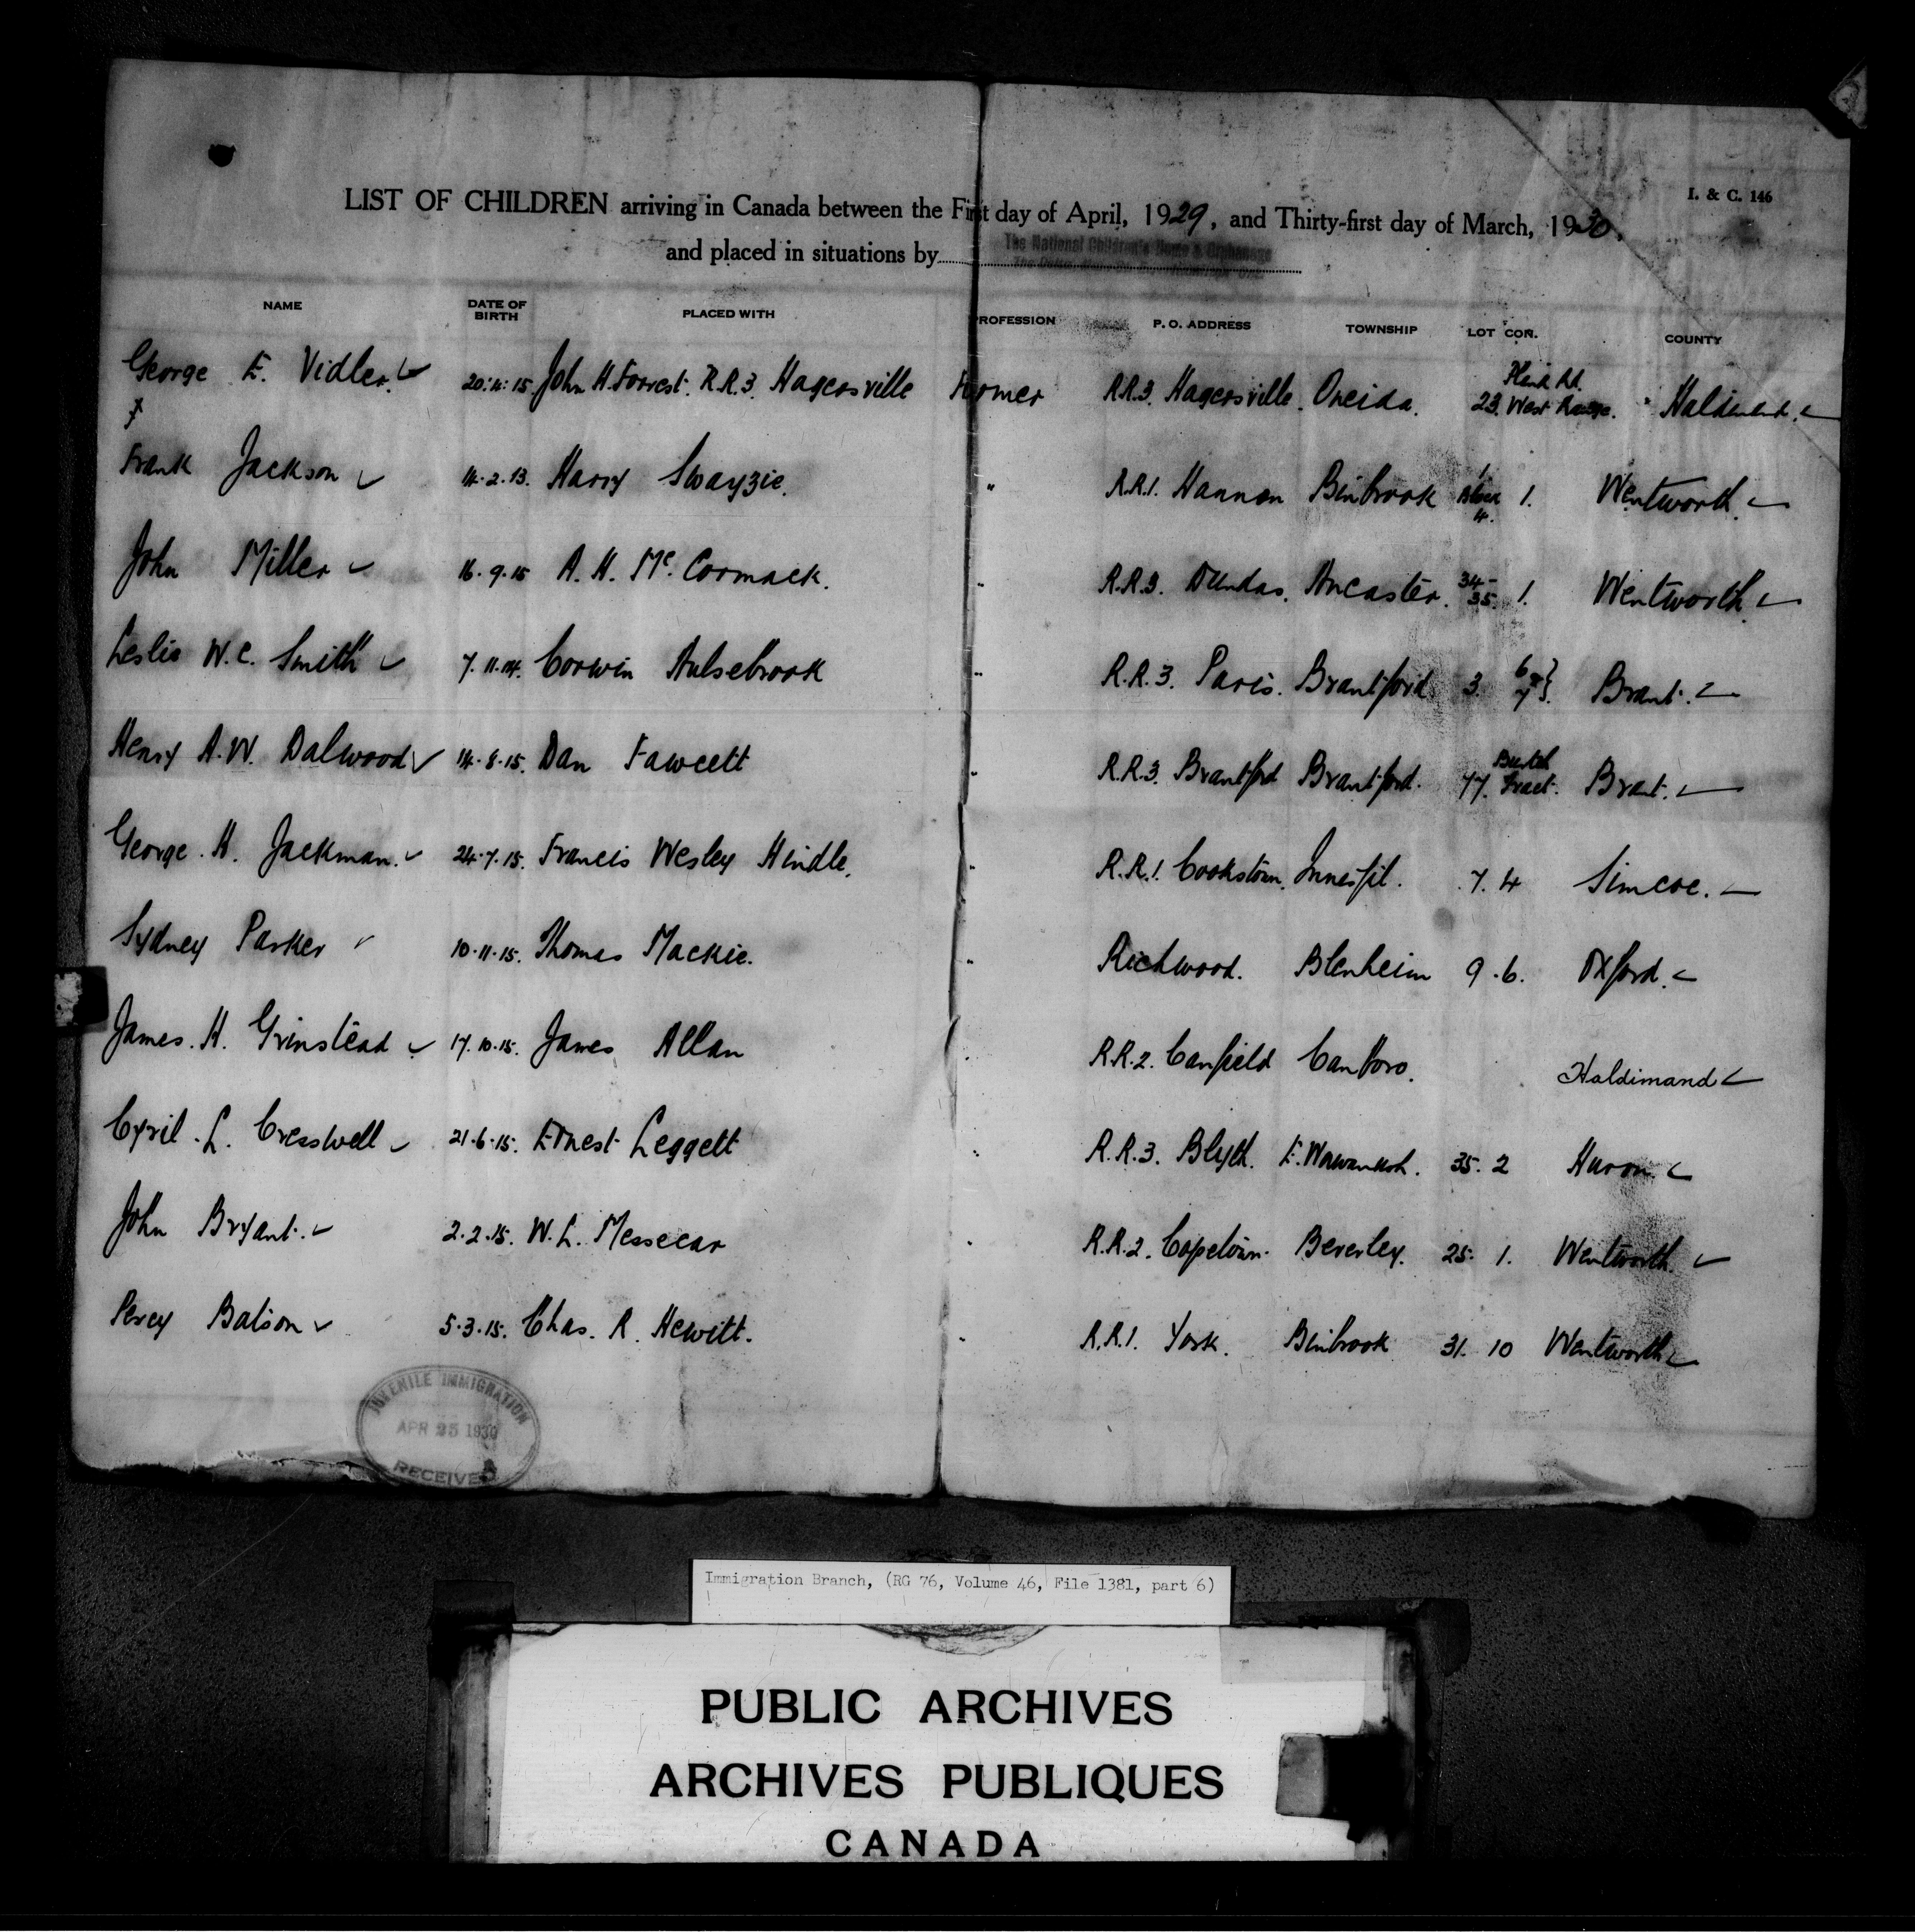 I. & C. 146
LIST OF CHILDREN arriving in Canada between the First day of April, 1929, and Thirty-first day of March, 1930.
and placed in situations by The National Children's Home & Orphanage
NAME DATE OF BIRTH PLACED WITH PROFESSION P. O. ADDRESS TOWNSHIP LOT CON. COUNTY
George E. Vidler. John H. Forrest. R.R.3. Hagersville Farmer R.R.3. Hagersville. Oneida. 23. Plank Rd. West Range. Haldimand.
Frank Jackson 14.2.13. Harry Swayzie. " R.R.1. Hannon Binbrook 1 Block 4. 1. Wentworth.
John Miller 16.9.15 A. H. Mc. Cormack. " R.R.3. Dundas. Ancaster. 34-35. 1. Wentworth.
Leslie W. C. Smith 7.11.14. Corwin Hulsebrook " R.R.3. Paris. Brantford 3. 6 & 7 Brant.
Henry A. W. Dalwood 14.8.15. Dan Fawcett " R.R.3. Brantford Brantford. 77. Burtch Tract. Brant.
George. H. Jackman. 24.7.15. Francis Wesley Hindle. " R.R.1. Cookstown. Innesfil. 7. 4 Simcoe.
Sydney Parker 10.11.15. Thomas Mackie. " Richwood. Blenheim 9. 6. Oxford.
James. H. Grinstead 17.10.15. James Allan " R.R.2. Canfield Canboro. Haldimand
Cyril. L. Cresswell 21.6.15. Ernest Leggett " R.R.3. Blyth. E. Wawanosh. 35. 2 Huron.
John Bryant. 2.2.15. W. L. Messecar " R.R.2. Copetown. Beverley. 25. 1. Wentworth.
Percy Batson 5.3.15. Chas. R. Hewitt. " R.R.1. York. Binbrook 31. 10 Wentworth
JUVENILE IMMIGRATION
APR 25 1930
RECEIVED
Immigration Branch, (RG 76, Volume 46, File 1381, part 6)
PUBLIC ARCHIVES
ARCHIVES PUBLIQUES
CANADA